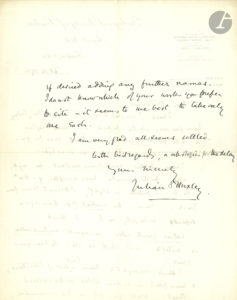 if desired adding any further names.
I do not know which of your works you prefer
to cite – it seems to me best to take only
one each.
I am very glad all seems settled
With best regards, & apologies for the delay
Yours sincerely
Julian S. Huxley